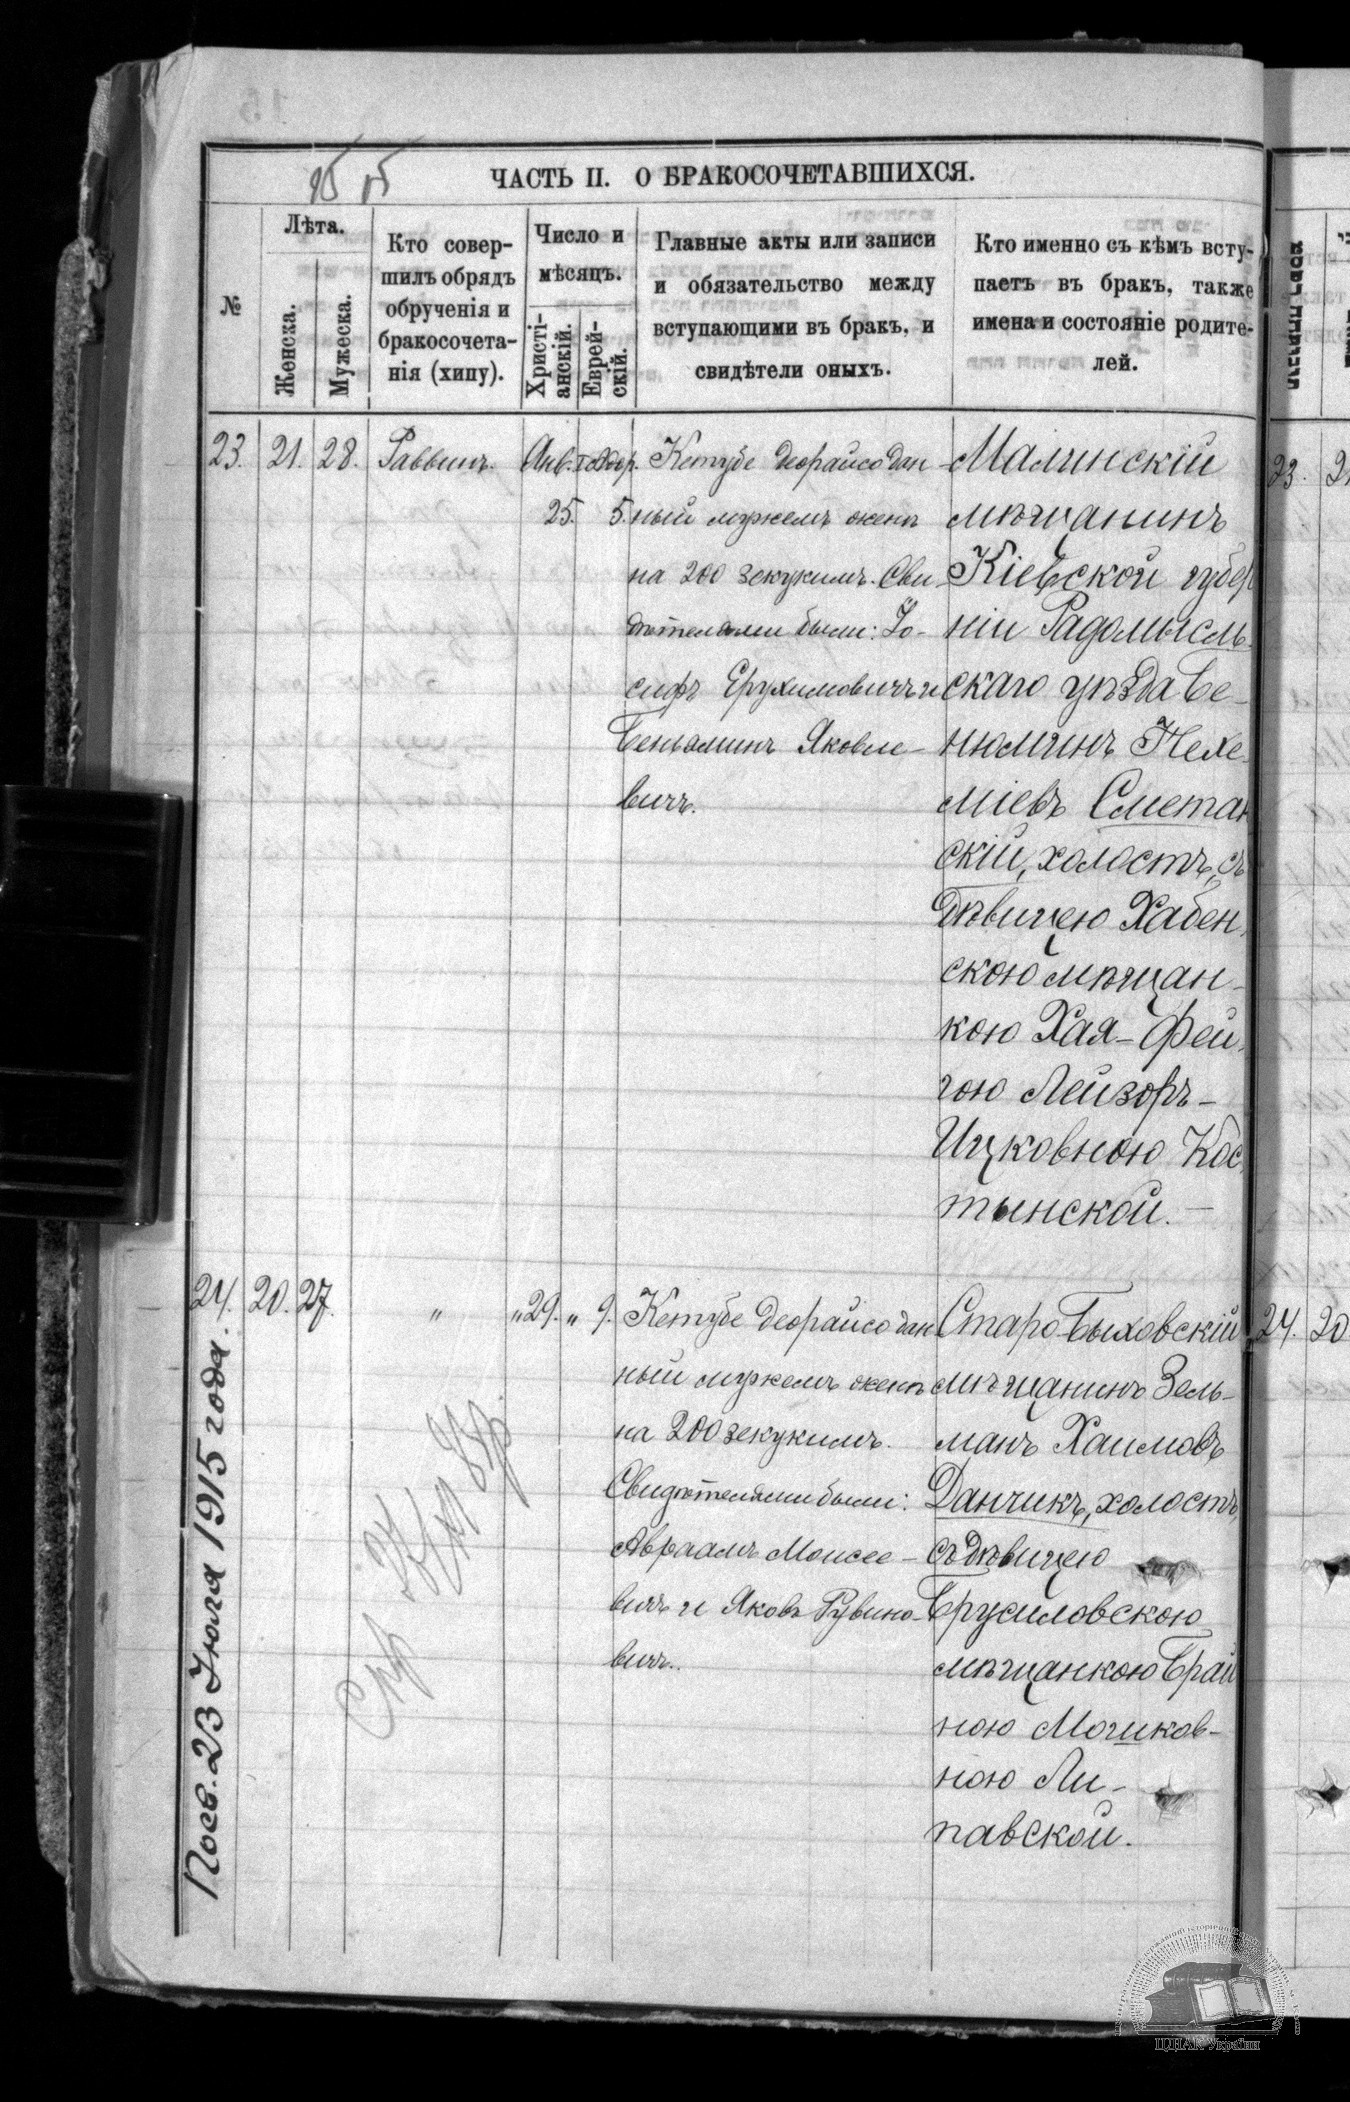 ЧАСТЬ II. О БРАКОСОЧЕТАВШИХСЯ.
№
Лѣта.
Женска.
Мужеска.
Кто совер-
шилъ обрядъ
обрученія и
бракосочета-
нія (хипу).
Число и
мѣсяцъ.
Христі-
анскій.
Еврей-
скій.
Главные акты или записи
и обязательство между
вступающими въ бракъ, и
свидѣтели оныхъ.
Кто именно съ кѣмъ всту-
паетъ въ бракъ, также
имена и состояніе родите-
лей.
23. 21. 28. Раввинъ.
25. 5.
Кетубе деорайсо дан-
ный мужемъ женѣ
на 200 зекукимъ. Сви-
дѣтелями были: Іо-
сифъ Ерухимовичъ и
Беньяминъ Яковле-
вичъ.
Малинскій
мѣщанинъ
Кіевской губер
ніи Радомысль-
скаго уѣзда Бе-
нюминъ Нехе-
міевъ Сметан
скій, холостъ, съ
дѣвицею Хабен-
скою мѣщан-
кою Хая-Фей-
гою Лейзоръ-
Ицковною Кос
тынской.-
24. 20. 27. " " 29. " 9.
Кетубе деорайсо дан
ный мужемъ женѣ
на 200 зекукимъ.
Свидѣтелями были:
Авраамъ Моисее-
вичъ и Яковъ Рувино-
вичъ.
Старо-Быховскій
мѣщанинъ Зель-
манъ Хаимовъ
Данчикъ, холостъ,
съ дѣвицею
Брусиловскою
мѣщанкою Брай
ною Мошков-
ною Ли-
павской.
Посв. 23 Іюля 1915 года.
23.
24. 20
ЦДІАК України